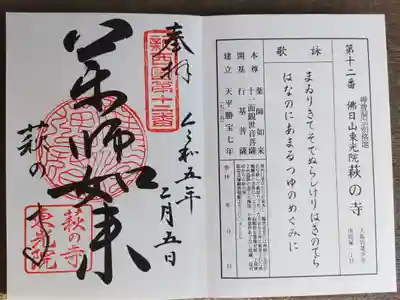 第十二番 佛日山東光院 萩の寺
詠歌
まゐりきてそでぬらしけりはぎのてら
はなのにあまるつゆのめぐみに
本尊 薬師如来
十一面観世音菩薩
開基 行基菩薩
建立 天平勝宝七年
奉拝
令和五年
二月五日
新西国第十二番
薬師如来
萩の寺
萩の寺
東光院